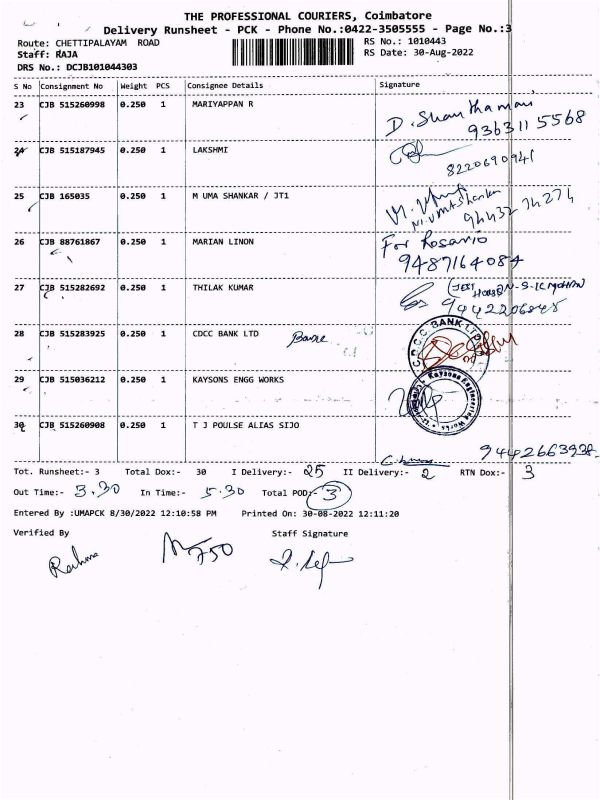 THE PROFESSIONAL COURIERS, Coimbatore
Delivery Runsheet - PCK - Phone No.:0422-3505555 - Page No.:3
Route: CHETTIPALAYAM ROAD
RS No.: 1010443
Staff: RAJA
RS Date: 30-Aug-2022
DRS No.: DCJB101044303
S No Consignment No Weight PCS Consignee Details Signature
23 CJB 515260998 0.250 1 MARIYAPPAN R
D. Shanthamani
9363115568
24 CJB 515187945 0.250 1 LAKSHMI
8220690941
25 CJB 165035 0.250 1 M UMA SHANKAR / JT1
M. UMAShankar
94432 74274
26 CJB 88761867 0.250 1 MARIAN LINON
For Rosario
9487164084
27 CJB 515282692 0.250 1 THILAK KUMAR
9442206848
28 CJB 515283925 0.250 1 CDCC BANK LTD
C.D.C.C. BANK LTD
29 CJB 515036212 0.250 1 KAYSONS ENGG WORKS
Kaysons Engineering Works
30 CJB 515260908 0.250 1 T J POULSE ALIAS SIJO
9442663938
Tot. Runsheet:- 3 Total Dox:- 30 I Delivery:- 25 II Delivery:- 2 RTN Dox:- 3
Out Time:- 3.30 In Time:- 5.30 Total POD:- 3
Entered By :UMAPCK 8/30/2022 12:10:58 PM Printed On: 30-08-2022 12:11:20
Verified By Staff Signature
750